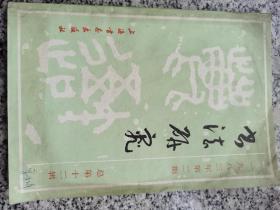 上海书画出版社
书法研究
一九八三年第二辑
总第十二辑